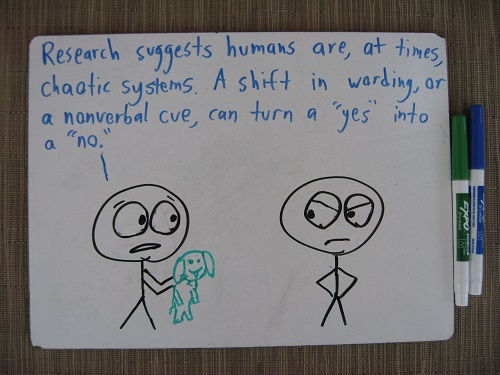 Research suggests humans are, at times,
chaotic systems. A shift in wording, or
a nonverbal cue, can turn a "yes" into
a "no."
EXPO